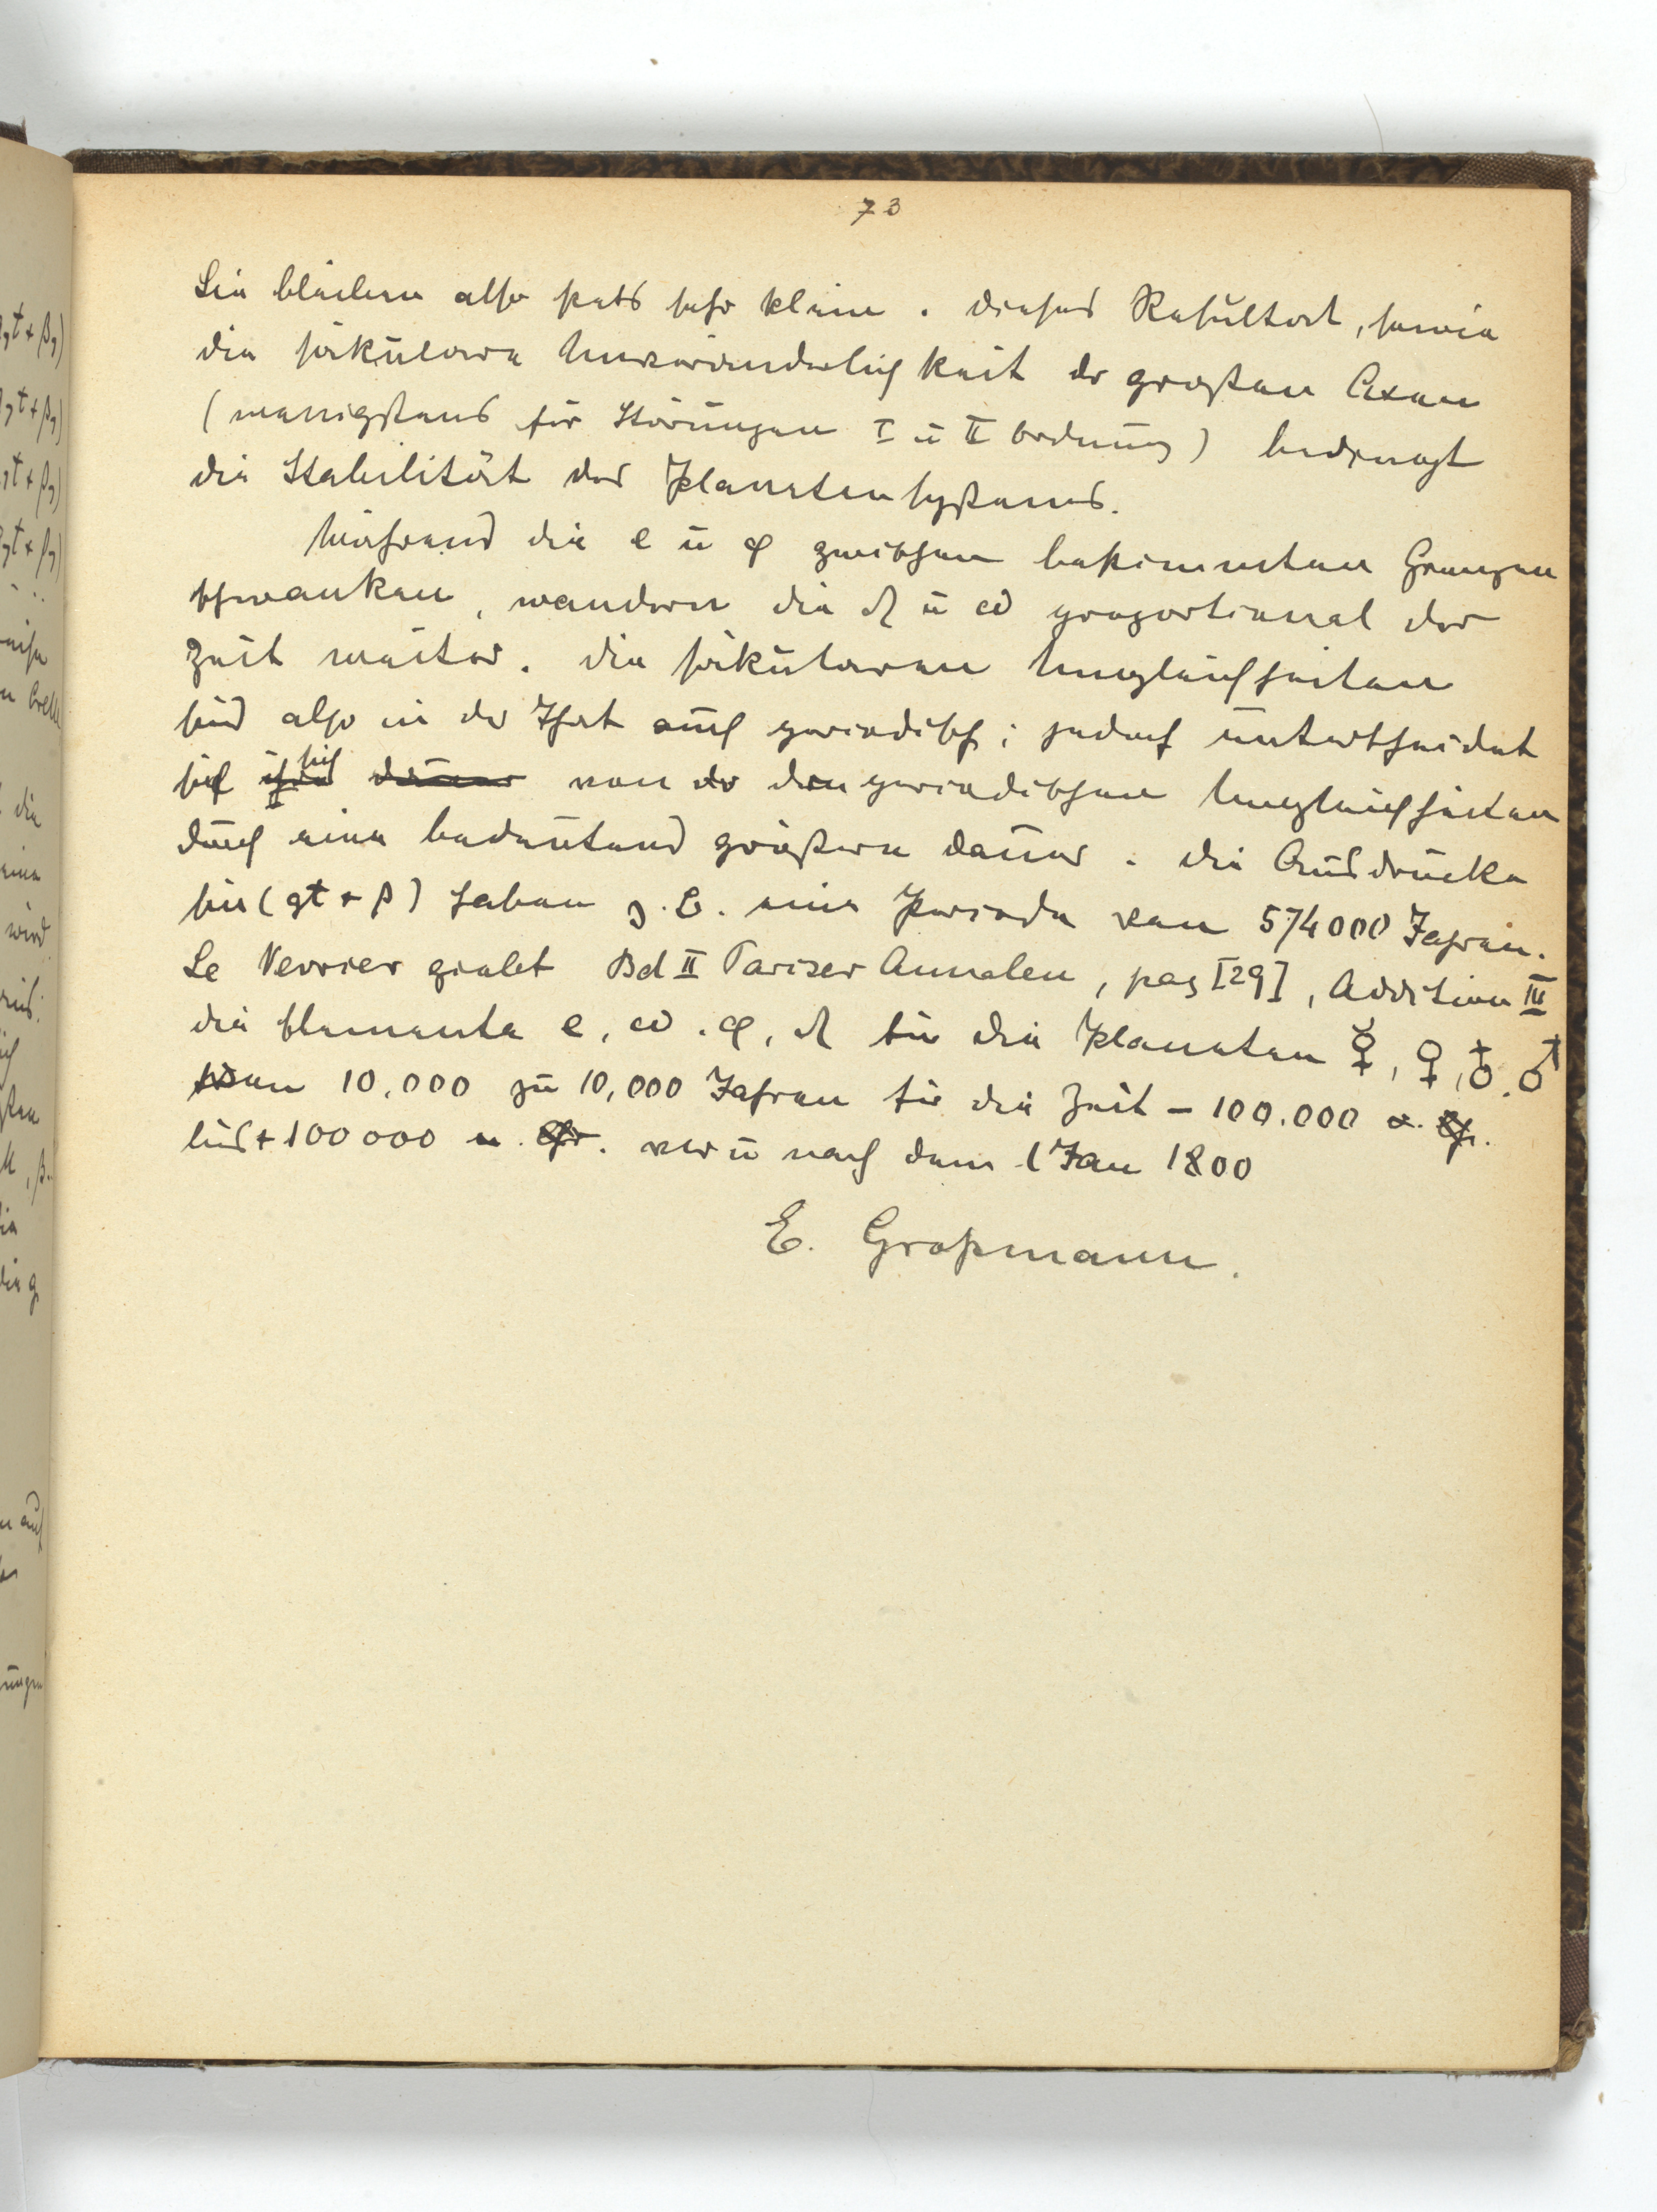 73
Sie bleiben also stets sehr klein. Dieses Resultat, sowie
die säkulare Unveränderlichkeit der großen Axen
(wenigstens für Störungen I u II Ordnung) bedingt
die Stabilität des Planetensystems.
Während die e u φ zwischen bestimmten Grenzen
schwanken, wandern die ☊ u ω proportional der
Zeit weiter. Die säkularen Ungleichheiten
sind also in der That auch periodisch; jedoch unterscheidet
sich von der den periodischen Ungleichheiten
durch eine bedeutend größere Dauer. Die Ausdrücke
sin (gt + β) haben z. B. eine Periode von 574000 Jahren.
Le Verrier giebt Bd II Pariser Annalen, pag [29], Addition III
die Elemente e, ω, φ, ☊ für die Planeten ☿, ♀, ♁, ♂
von 10,000 zu 10,000 Jahren für die Zeit – 100.000
bis + 100000 vor u nach dem 1 Jan 1800
E. Großmann.
gt + β,)
gt + β,)
gt + β,)
gt + β,)
die
eine
wird